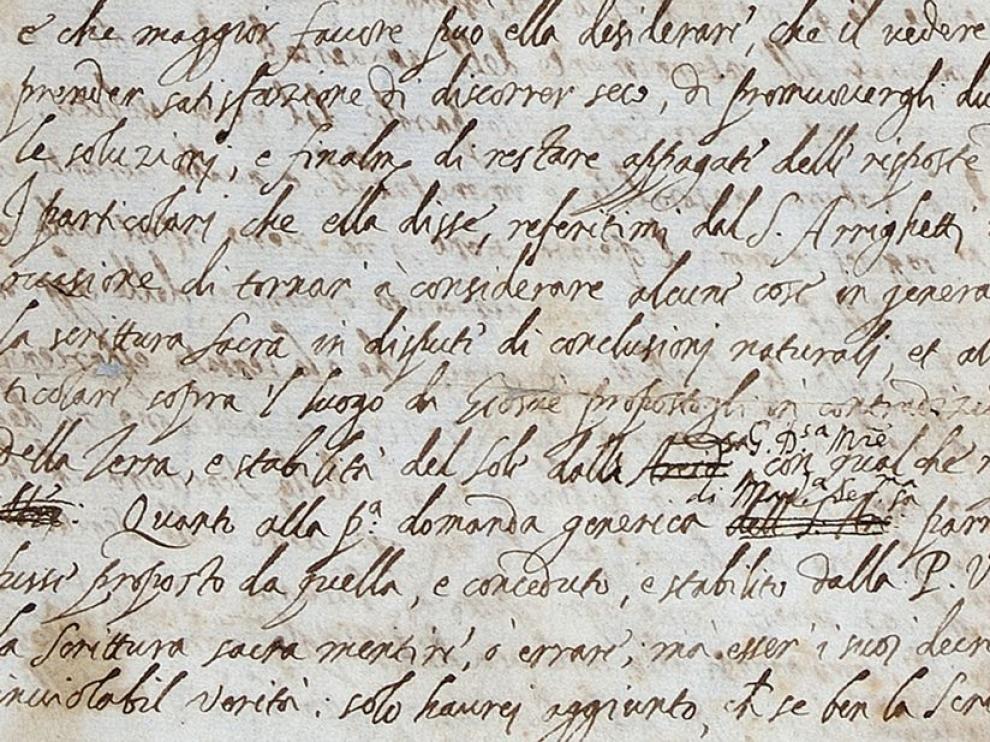 e che maggior favore può ella desiderare, che il vedere
prender satisfazione di discorrer seco, di promuovergli du
le soluzioni, e finalm.e di restare appagate delle risposte
I particolari che ella disse, referitimi dal S. Arrighetti
occasione di tornar à considerare alcune cose in genera
la scrittura sacra in dispute di conclusioni naturali, et al
ticolare sopra 'l luogo di Giosuè propostogli in contradizi
sa G. D.sa Mre
della Terra, e stabilità del Sole dalla con qual che
di Mad.a Ser.ma
Quanto alla p.a domanda generica parm
fusse proposto da quella, e conceduto, e stabilito dalla P. V
la Scrittura sacra mentire, ò errare; ma esser i suoi decre
inviolabil verità: solo haurei aggiunto, ch se ben la Scri